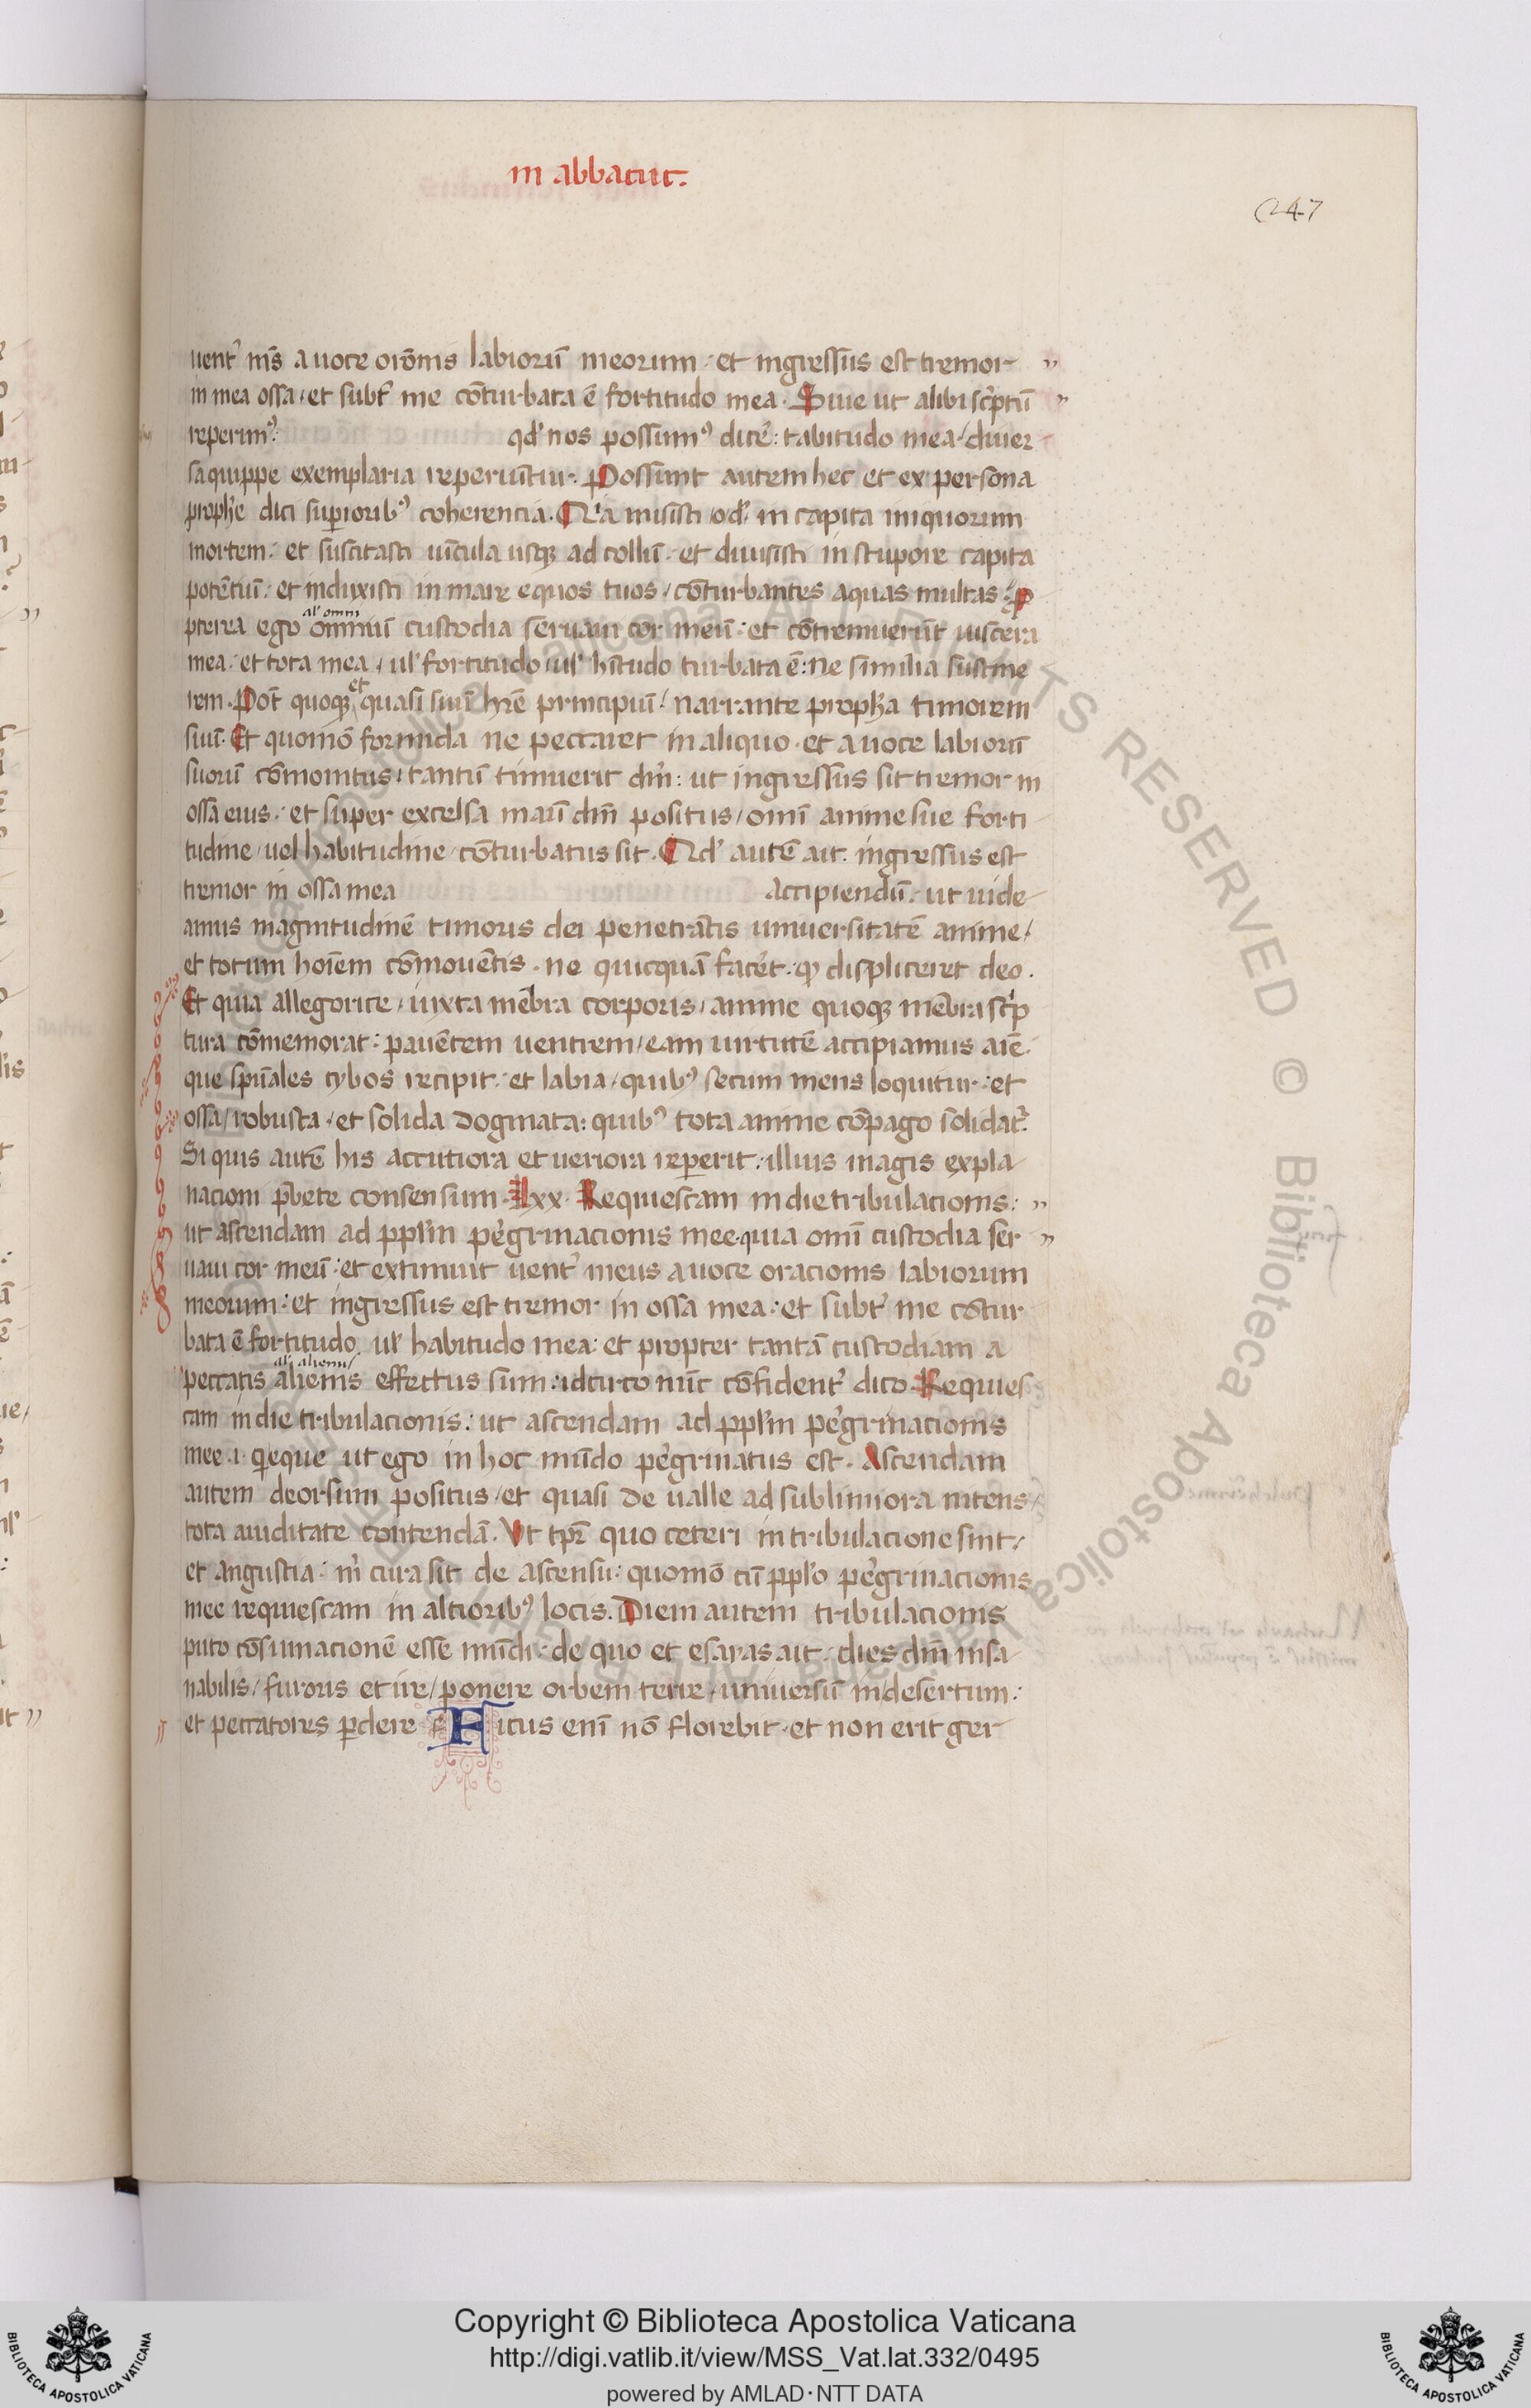 in abbacuc.
247
uentꝰ mͤs a uoce orōnis labiorū meorum · et ingressus est tremor
in mea ossa · et subtꝰ me cōturbata ē fortitudo mea · Siue ut alibi sc̄ptū
reperimꝰ: qd' nos possumꝰ dicē: habitudo mea / diuer
sa quippe exemplaria reperiūtur · Possunt autem hec et ex persona
prophē dici superioribꝰ coherencia · Q'a misisti qd' in capita iniquorum
mortem: et suscitasti uīcula usqꝫ ad collū · et diuisisti in stupore capita
potētiū: et induxisti in mare equos tuos / cōturbantes aquas multas: ꝓ
al' omni
pterea ego omniū custodia seruaui cor meū: et cōtremuerūt uiscera
mea: et tota mea / ul' fortitudo / ul' hītudo turbata ē: ne similia sustine
et
rem · Pōt quoqꝫ quasi suū hr̄e principiū / narrante propha timorem
suū · Et quomō formida ne peccaret in aliquo · et a uoce labiorū
suorū cōmonitus / tantū timuerit dn̄m: ut ingressus sit tremor in
ossa eius · et super excelsa manū dn̄i positus / omī anime sue forti
tudine / uel habitudine / cōturbatus sit · Qd' autē ait · ingressus est
tremor in ossa mea accipiendū: ut uide
amus magnitudinē timoris dei penetrātis uniuersitatē anime /
et totum hoīem cōmouētis · ne quicquā facēt: qd displiceret deo ·
Et quia allegorice / iuxta mēbra corporis / anime quoqꝫ mēbra sc̄p
tura cōmemorat: pauētem uentrem / eam uirtutē accipiamus aīe
que spūales cybos recipit: et labia / quibꝰ secum mens loquitur: et
ossa / robusta / et solida dogmata: quibꝰ tota anime cōpago solidatᷣ
Si quis autē his accutiora et ueriora reperit: illius magis expla
nacioni p̄bete consensum · Lxx · Requiescam in die tribulacionis:
ut ascendam ad ppl'm peḡrinacionis mee · quia omī custodia ser
uaui cor meū: et extimuit uentꝰ meus a uoce oracionis labiorum
meorum: et ingressus est tremor in ossa mea: et subtꝰ me cōtur
bata ē fortitudo ul' habitudo mea: et propter tantā custodiam a
al' alienus
peccatis alienis effectus sum: idcirco nūc cōfidentꝰ dico · Requies
cam in die tribulacionis: ut ascendam ad ppl'm peḡrinacionis
mee · i · qͥ eque ut ego in hoc mūdo peḡrinatus est · Ascendam
autem deorsum positus / et quasi de ualle ad sublimiora nitens /
tota auiditate contendā · Vt tpr̄e quo ceteri in tribulacione sint /
et angustia: m̄ cura sit de ascensu: quomō cū ppl'o peḡrinacionis
mee requiescam in altioribꝰ locis · Diem autem tribulacionis
puto cōsumacionē esse mūdi: de quo et esayas ait: dies dn̄i insa
nabilis / furoris et ire / ponere orbem terre uniuersū in desertum:
et peccatores ꝑdere Ficus enī nō florebit · et non erit ger
Copyright © Biblioteca Apostolica Vaticana
http://digi.vatlib.it/view/MSS_Vat.lat.332/0495
powered by AMLAD · NTT DATA